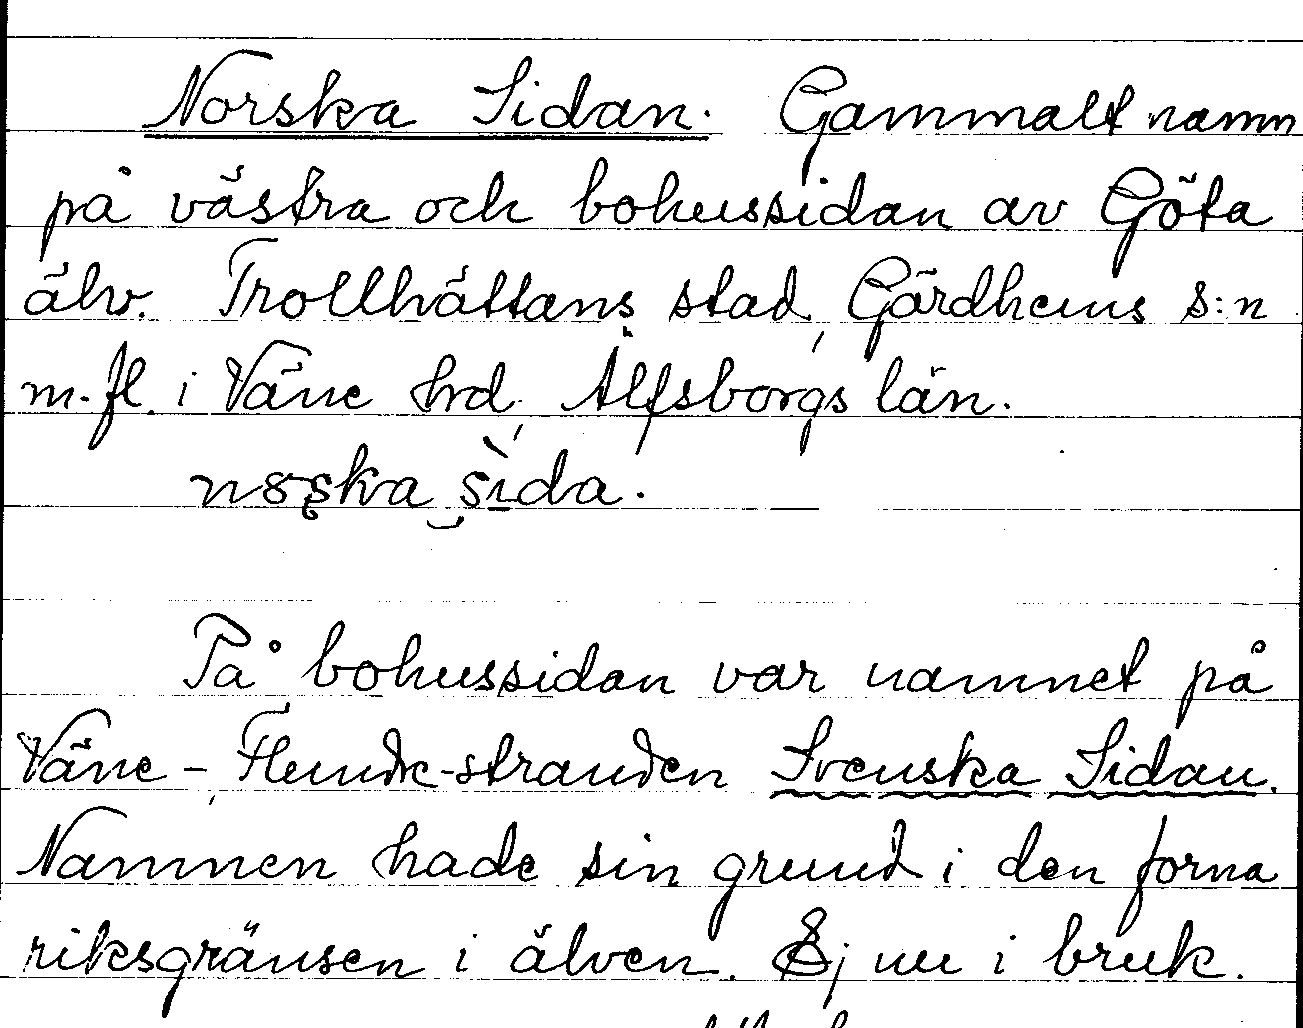 Norska Sidan. Gammalt namn
på västra och bohussidan av Göta
älv. Trollhättans stad, Gärdhems s:n
m.fl. i Väne hrd, Älfsborgs län.
nos̨ka sìda.
På bohussidan var namnet på
Väne-, Flundre-stranden Svenska Sidan.
Namnen hade sin grund i den forna
riksgränsen i älven. Ej nu i bruk.